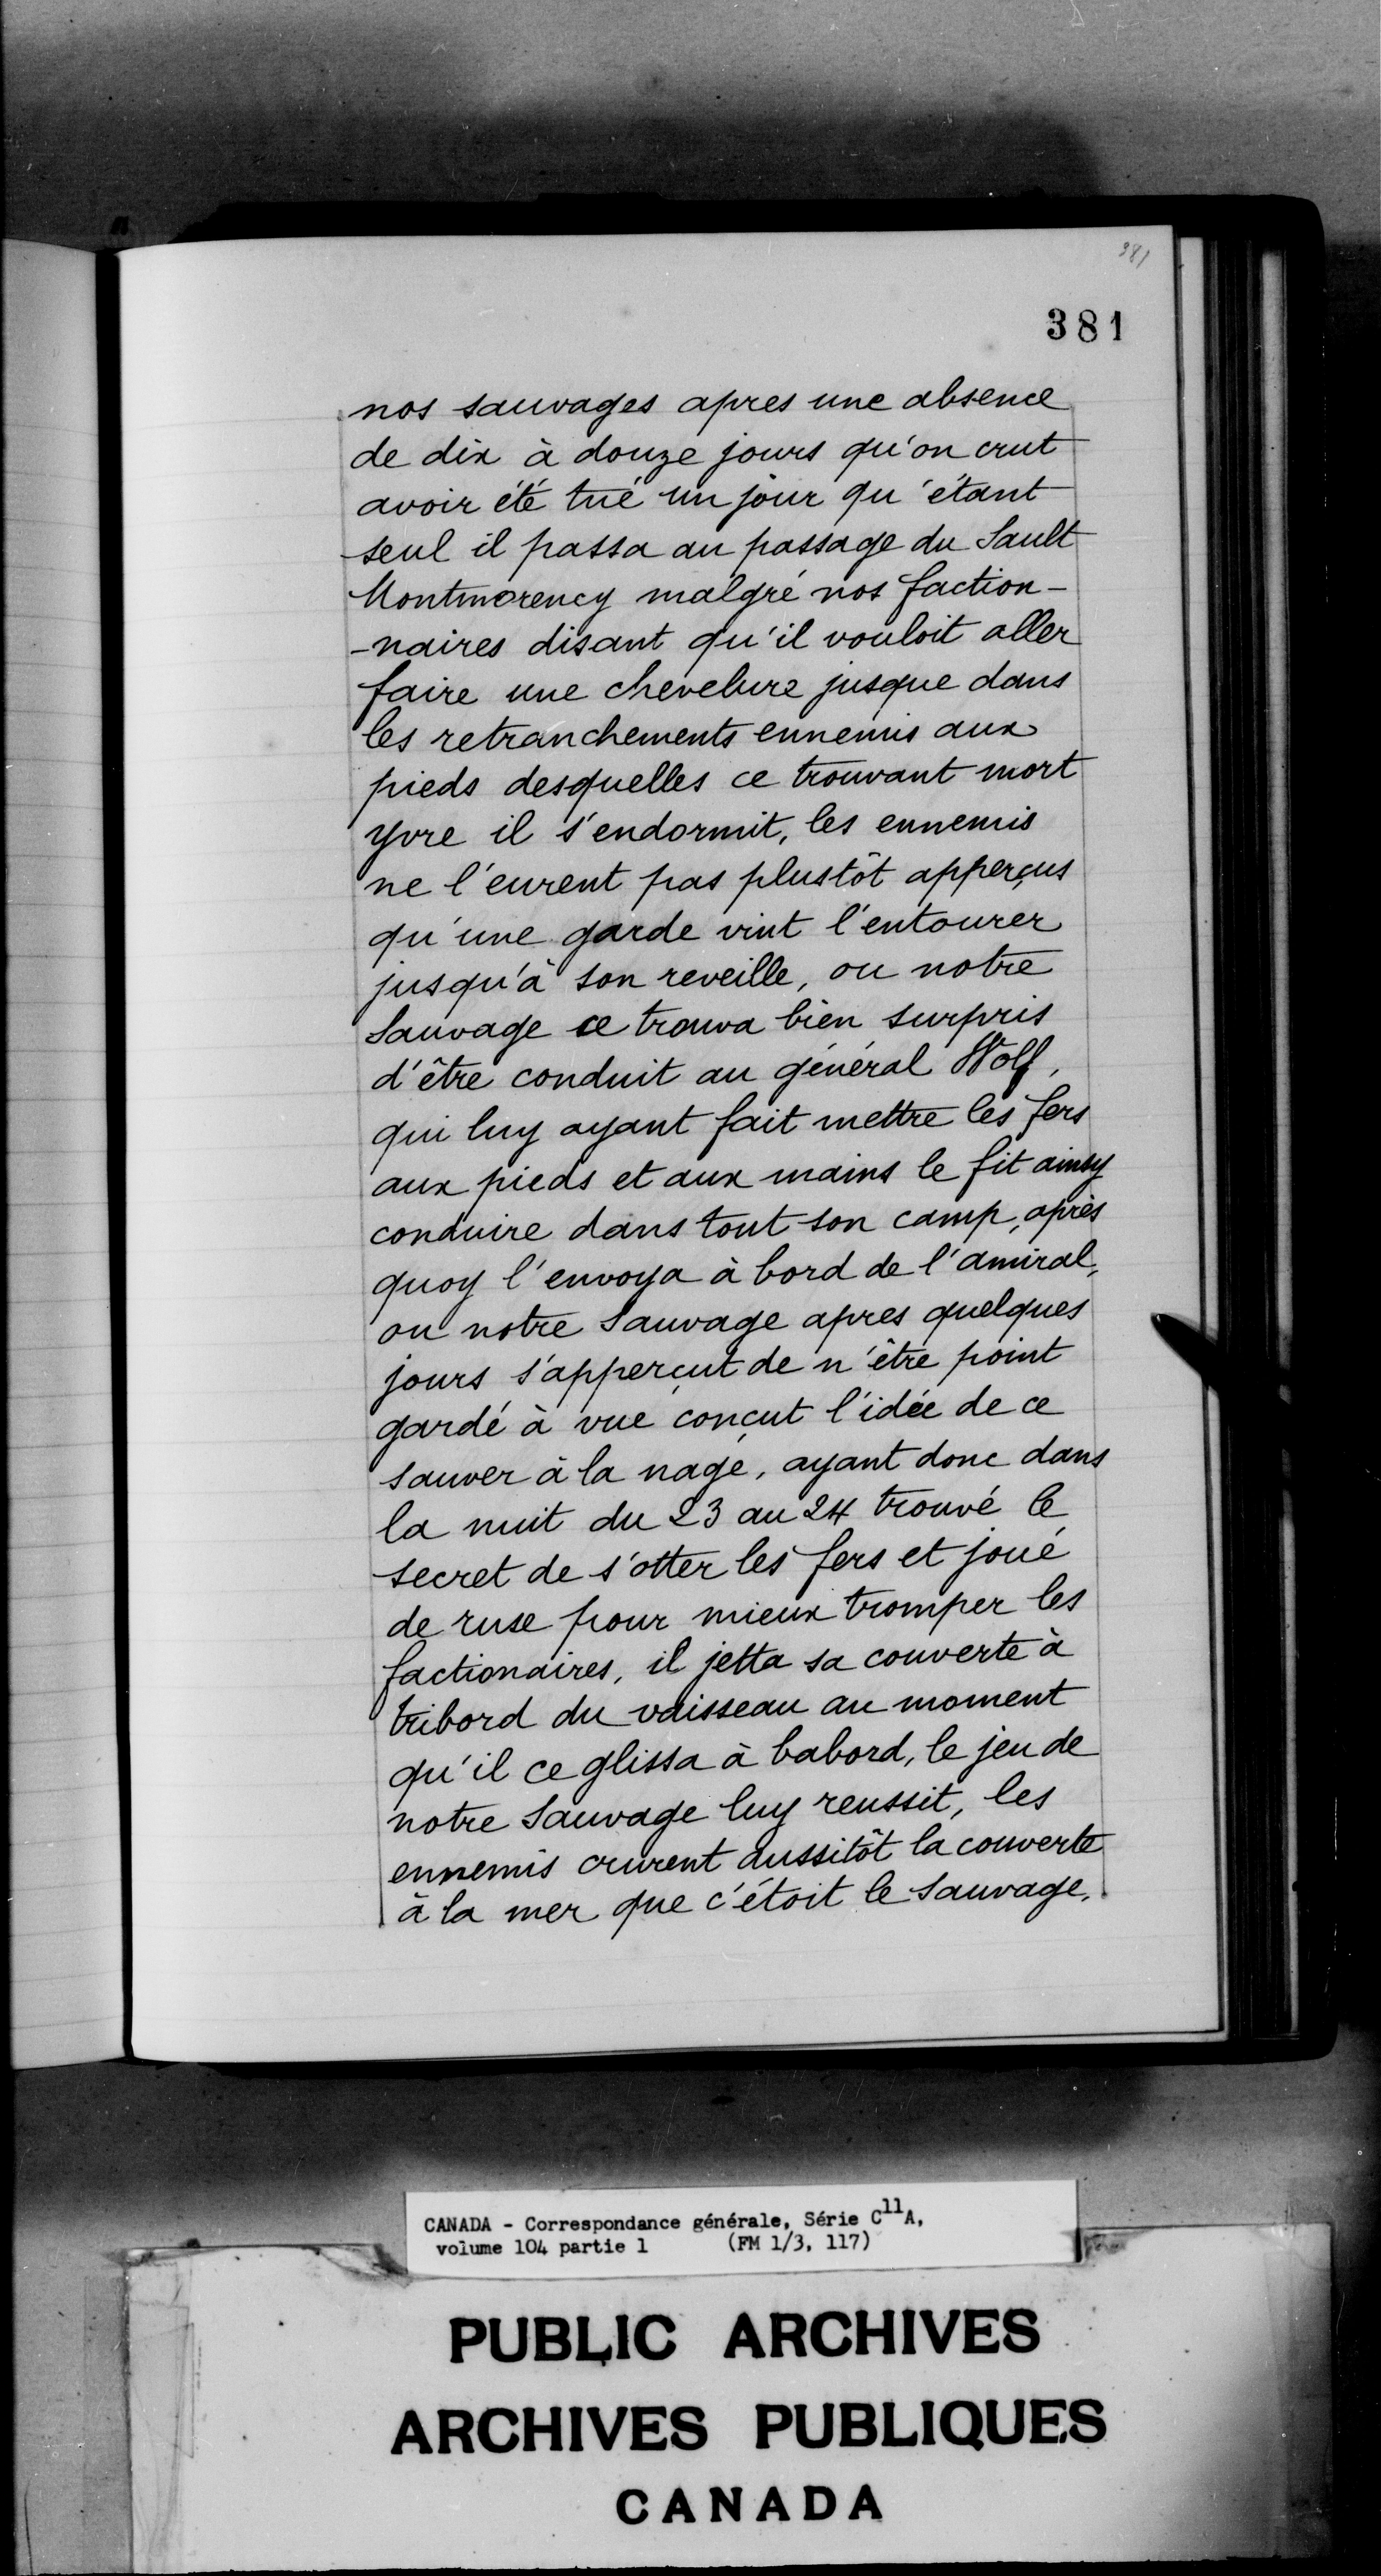 381
381
nos sauvages apres une absence
de dix à douze jours qu'on crut
avoir été tué un jour qu'étant
seul il passa au passage du Sault
Montmorency malgré nos faction-
-naires disant qu'il vouloit aller
faire une chevelure jusque dans
les retranchements ennemis aux
pieds desquelles ce trouvant mort
yvre il s'endormit, les ennemis
ne l'eurent pas plustôt apperçus
qu'une garde vint l'entourer
jusqu'à son reveille, ou notre
Sauvage ce trouva bien surpris
d'être conduit au général Wolf,
qui luy ayant fait mettre les fers
aux pieds et aux mains le fit ainsy
conduire dans tout son camp, après
quoy l'envoya à bord de l'amiral,
ou notre Sauvage apres quelques
jours s'apperçut de n'être point
gardé à vue conçut l'idée de ce
sauver à la nage, ayant donc dans
la nuit du 23 au 24 trouvé le
secret de s'otter les fers et joué
de ruse pour mieux tromper les
factionaires, il jetta sa couverte à
tribord du vaisseau au moment
qu'il ce glissa à babord, le jeu de
notre Sauvage luy reussit, les
ennemis crurent aussitôt la couverte
à la mer que c'étoit le Sauvage.
CANADA - Correspondance générale, Série C11A,
volume 104 partie 1 (FM 1/3, 117)
PUBLIC ARCHIVES
ARCHIVES PUBLIQUES
CANADA